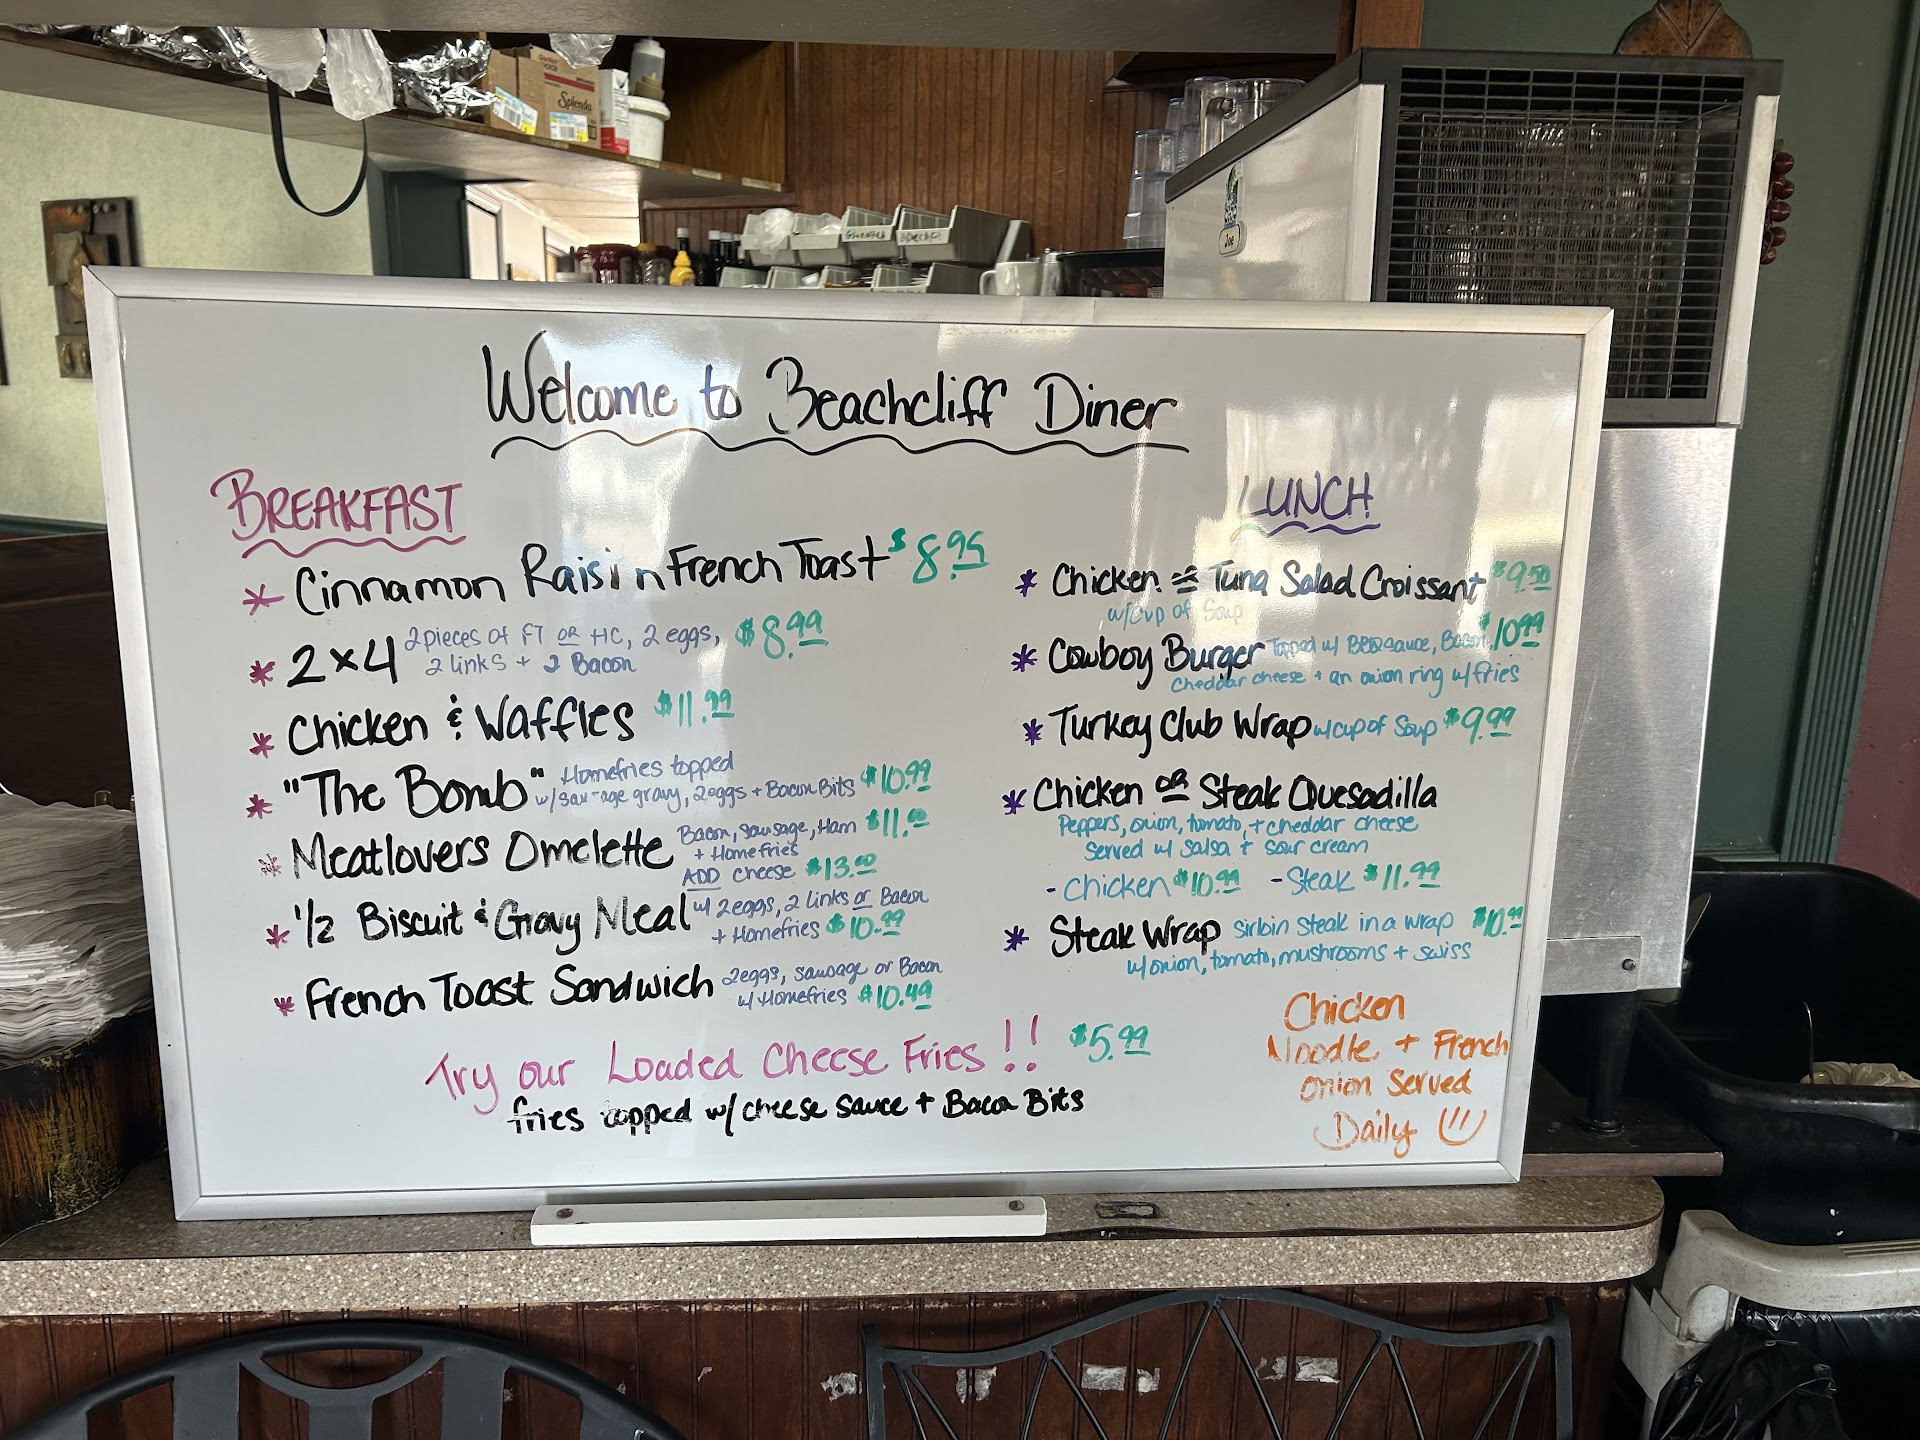 Splenda
Joe
Welcome to Beachcliff Diner
BREAKFAST
* Cinnamon Raisin French Toast $8.95
* 2x4 2 pieces of FT OR HC, 2 eggs, $8.99
2 links + 2 Bacon
* Chicken & Waffles $11.99
* "The Bomb" Homefries topped
w/sausage gravy, 2 eggs + Bacon Bits $10.99
* Meatlovers Omelette Bacon, sausage, Ham $11.00
+ Homefries
ADD cheese $13.00
* 1/2 Biscuit & Gravy Meal w/ 2 eggs, 2 links or Bacon
+ Homefries $10.99
* French Toast Sandwich 2 eggs, sausage or Bacon
w/ Homefries $10.49
Try our Loaded Cheese Fries!! $5.99
fries topped w/ cheese sauce + Bacon Bits
LUNCH
* Chicken or Tuna Salad Croissant $9.50
w/cup of Soup
* Cowboy Burger Topped w/ BBQ sauce, Bacon, $10.99
Cheddar cheese + an onion ring w/fries
* Turkey Club Wrap w/cup of Soup $9.99
* Chicken OR Steak Quesadilla
Peppers, onion, tomato, + cheddar cheese
Served w/ salsa + sour cream
- Chicken $10.99 - Steak $11.99
* Steak Wrap sirloin steak in a wrap $10.99
w/onion, tomato, mushrooms + swiss
Chicken
Noodle + French
onion Served
Daily